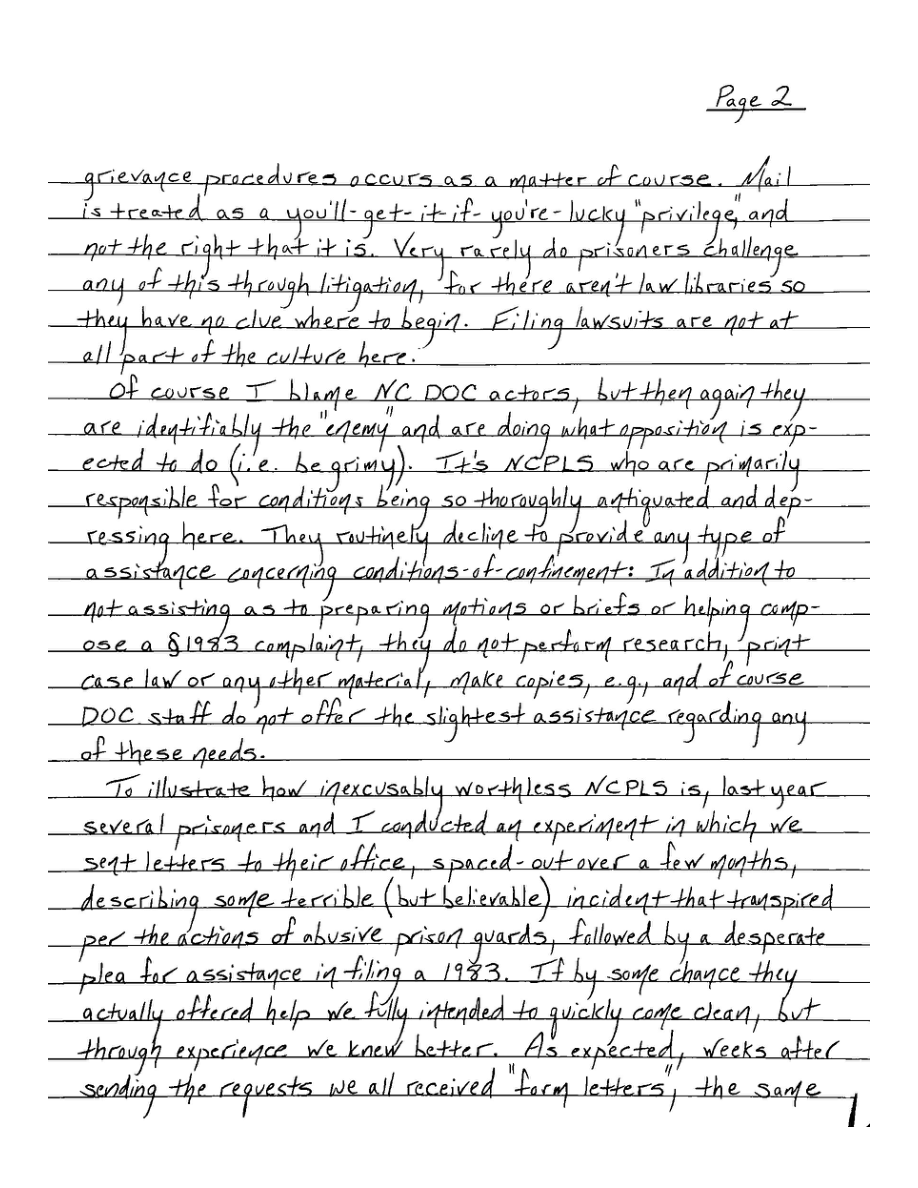 Page 2
grievance procedures occurs as a matter of course. Mail
is treated as a you'll-get-it-if-you're-lucky "privilege," and
not the right that it is. Very rarely do prisoners challenge
any of this through litigation, for there aren't law libraries so
they have no clue where to begin. Filing lawsuits are not at
all part of the culture here.
Of course I blame NC DOC actors, but then again they
are identifiably the "enemy" and are doing what opposition is exp-
ected to do (i.e. be grimy). It's NCPLS who are primarily
responsible for conditions being so thoroughly antiquated and dep-
ressing here. They routinely decline to provide any type of
assistance concerning conditions-of-confinement: In addition to
not assisting as to preparing motions or briefs or helping comp-
ose a §1983 complaint, they do not perform research, print
case law or any other material, make copies, e.g., and of course
DOC staff do not offer the slightest assistance regarding any
of these needs.
To illustrate how inexcusably worthless NCPLS is, last year
several prisoners and I conducted an experiment in which we
sent letters to their office, spaced-out over a few months,
describing some terrible (but believable) incident that transpired
per the actions of abusive prison guards, followed by a desperate
plea for assistance in filing a 1983. If by some chance they
actually offered help we fully intended to quickly come clean, but
through experience we knew better. As expected, weeks after
sending the requests we all received "form letters", the same